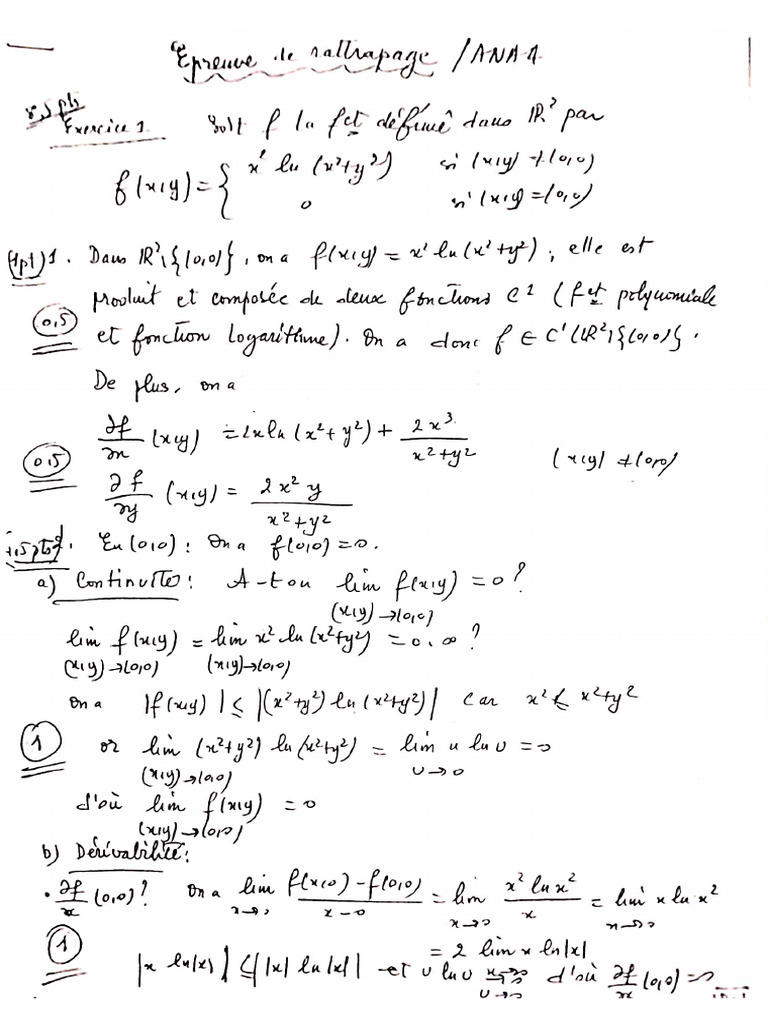 Epreuve de rattrapage / ANA 1
Exercice 1. Soit f la fct définie dans IR² par
f(x,y) = { x² ln(x²+y²) si (x,y) ≠ (0,0)
0 si (x,y) = (0,0)
(1pt) 1. Dans IR²\{(0,0)}, on a f(x,y) = x² ln(x²+y²), elle est
produit et composée de deux fonctions C¹ (fct polynomiale
0,5 et fonction logarithme). On a donc f ∈ C¹(IR²\{(0,0)}.
De plus, on a
∂f/∂x (x,y) = 2x ln(x²+y²) + 2x³/(x²+y²)
0,5 (x,y) ≠ (0,0)
∂f/∂y (x,y) = 2x²y/(x²+y²)
2. En (0,0) : On a f(0,0) = 0.
a) Continuité : A-t-on lim f(x,y) = 0 ?
(x,y)→(0,0)
lim f(x,y) = lim x² ln(x²+y²) = 0.∞ ?
(x,y)→(0,0) (x,y)→(0,0)
On a |f(x,y)| ≤ |(x²+y²) ln(x²+y²)| car x² ≤ x²+y²
1 or lim (x²+y²) ln(x²+y²) = lim u ln u = 0
(x,y)→(0,0) u→0
d'où lim f(x,y) = 0
(x,y)→(0,0)
b) Dérivabilité :
• ∂f/x (0,0) ? On a lim (f(x,0) - f(0,0))/(x-0) = lim x² ln x²/x = lim x ln x²
x→0 x→0 x→0
1 = 2 lim x ln|x|
|x ln|x|| ≤ ||x| ln|x|| et u ln u → 0 d'où ∂f/x (0,0) = 0
u→0